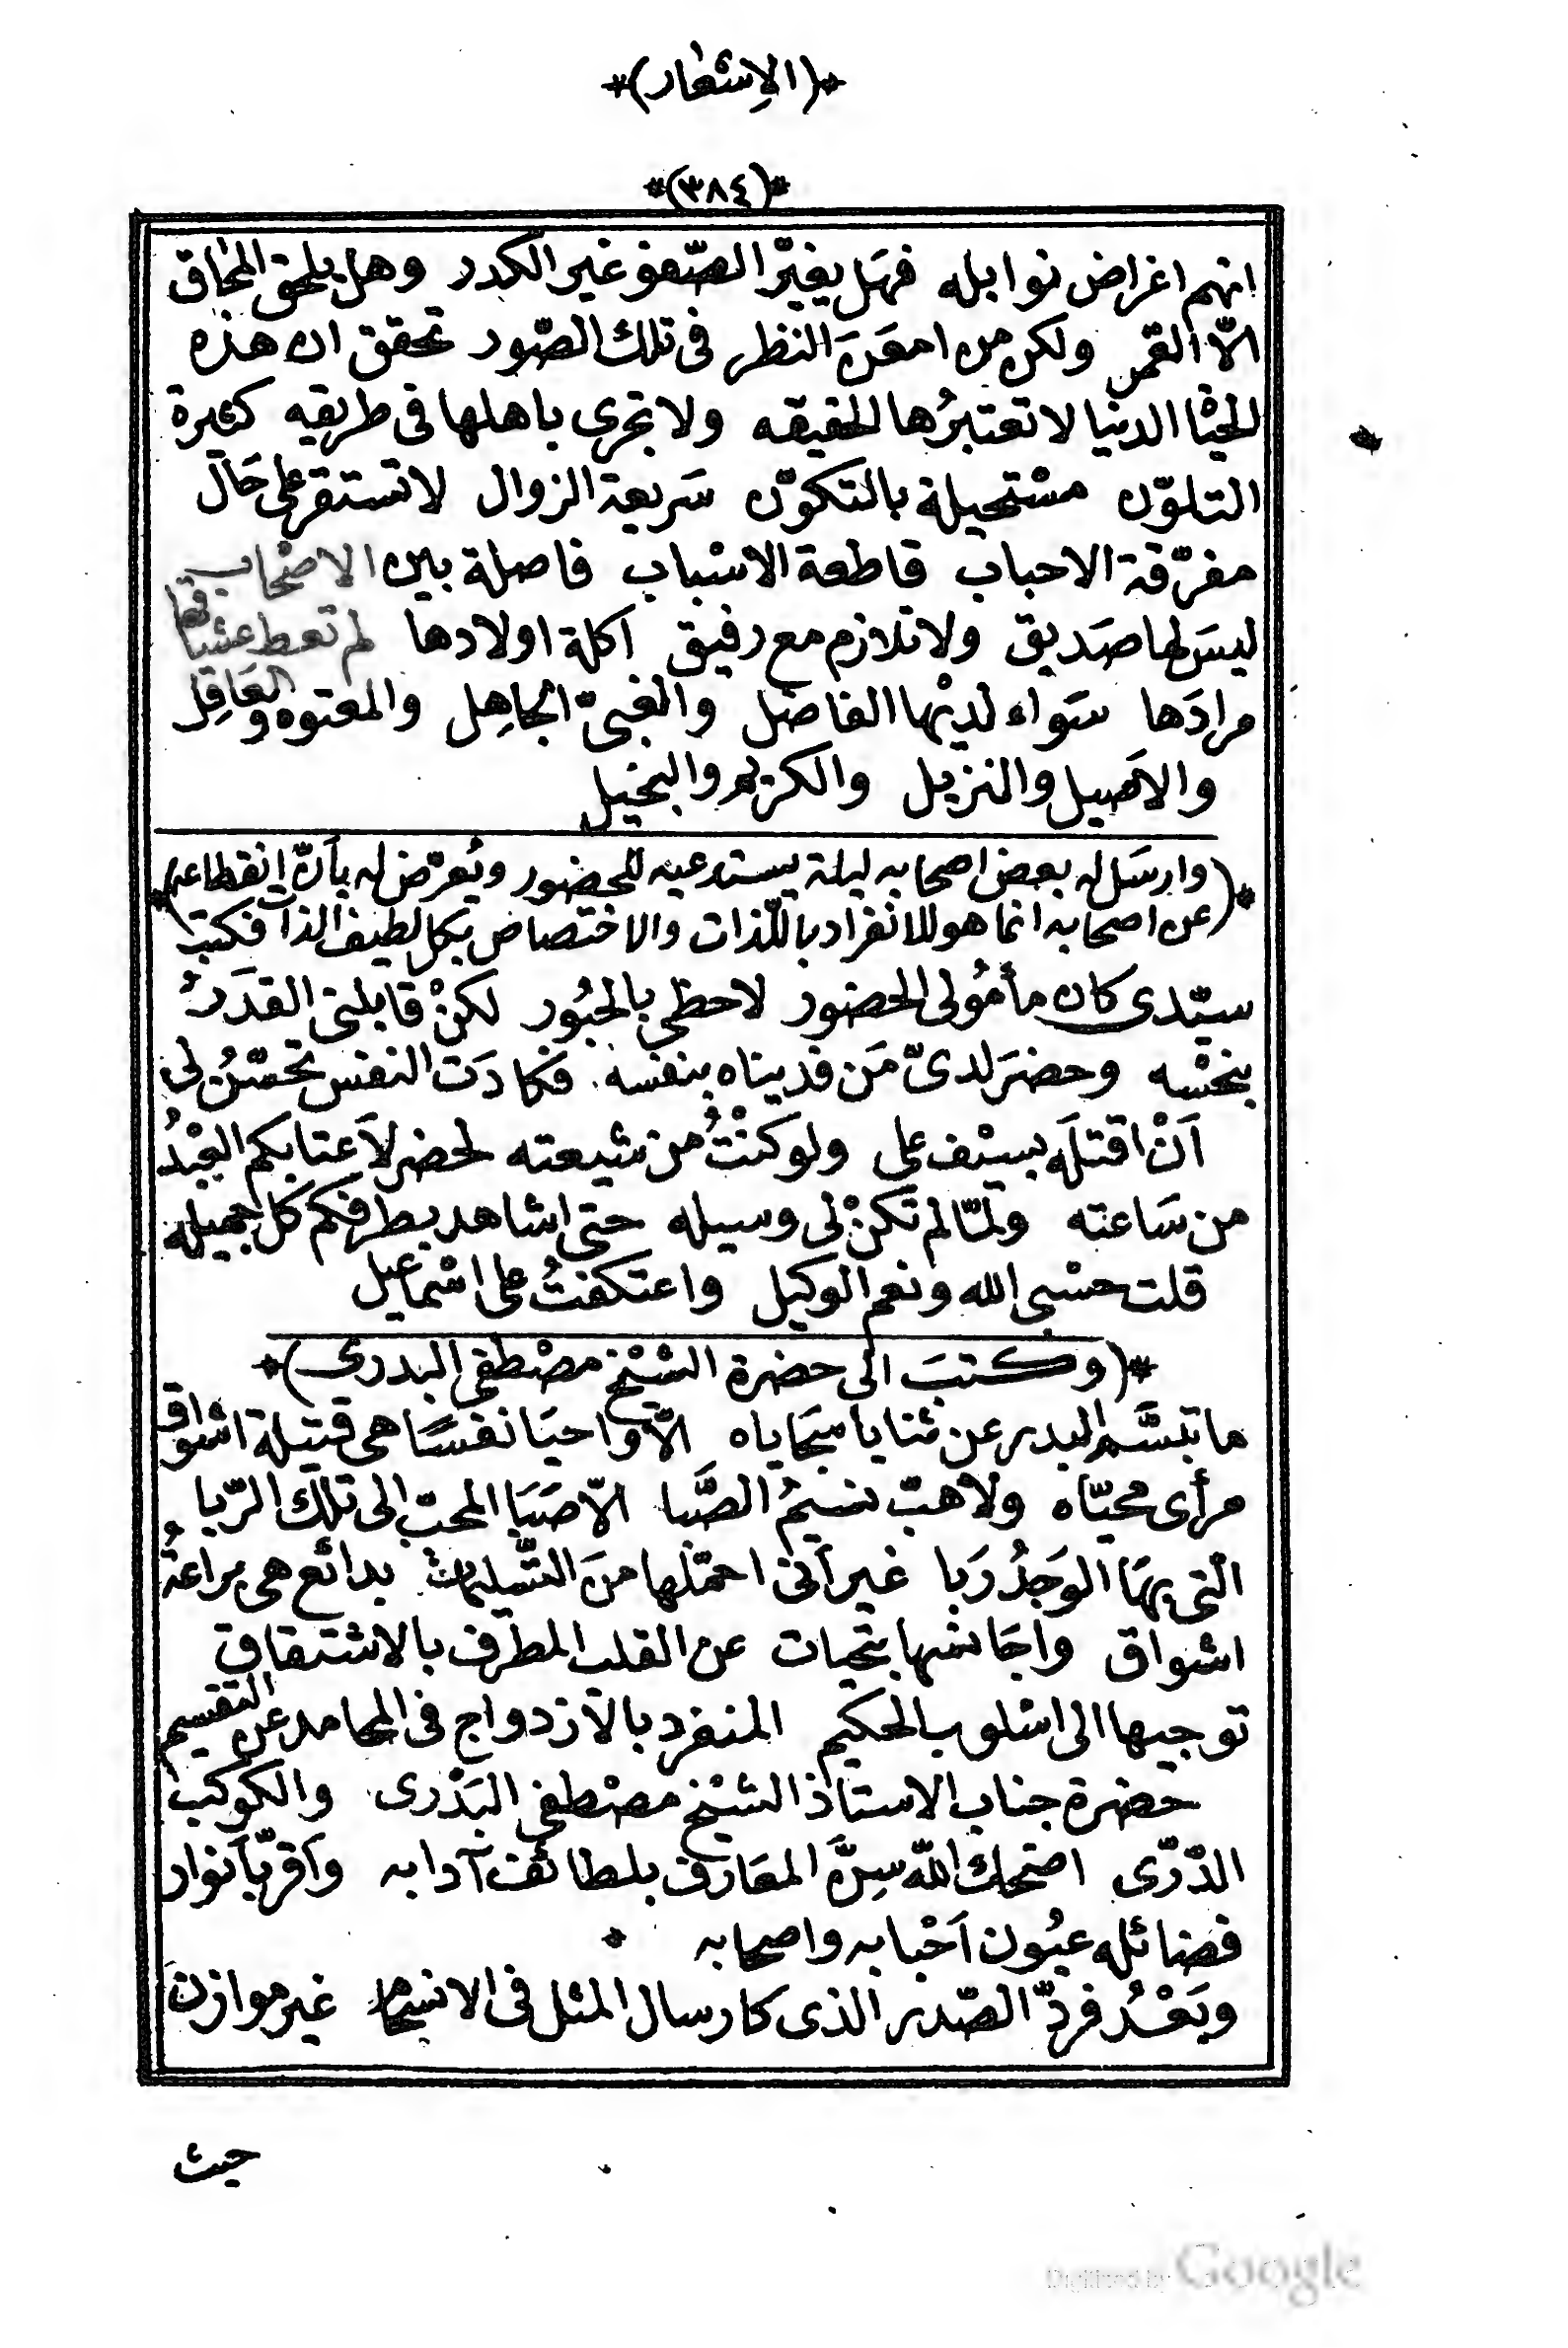 *(الاِشعار)*
*(٣٨٤)*
انهم اغراض نوابله فهَل يغيّر الصّفو غير الكدر وهل يلحق المحاق
الّا القمر ولكن من امعَنَ النظر فى تلك الصّور تحقق ان هذه
الحيٰا الدنيا لا تعتبرُها الحقيقه ولا تجرى باهلها فى طريقه كثيرة
التلوّن مسْتحيلة بالتكوّن سَريعة الزوال لا تستقر على حَال
مفرّقة الاحباب قاطعة الاسْباب فاصلة بين الاصْحاب
ليسَ لها صَديق ولا تلازم مع رفيق اكلة اولادها لم تعط عشاقها
مرادَها سَواء لديْها الفاضل والغبىّ الجاهِل والمعتوه والعَاقِل
والاصَيل والنزيل والكريم والبخيل
*(وارسَل له بعض اصحابه ليلة يستدعيه للحضور ويُعرّض له بأنّ انقطاعه
عن اصحابه انما هو للانفراد باللّذات والاختصاص بكل لطيف الذات فكتب)*
سيّدى كان مأمُولى الحضور لاحظى بالحبُور لكنْ قابلنى القدَرُ
بنحْسه وحضرَ لدىّ مَن فديناه بنفسه فكادَت النفس تحسّنُ لى
اَنْ اقتله بسيْف على ولو كنْتُ من شيعته لحضر لاَعتابكم العبْدُ
من سَاعته ولمّا لم تكنْ لى وسيله حتى اشاهد بطرفكم كل جميله
قلت حسْبى الله ونعم الوكيل واعتكفتُ على اسْماعيل
*(وكتبَ الى حضرة الشيْخ مصْطفى البدرى)*
ما تبسَّم البدر عن ثنايا سجاياه الّا واحيَا نفسًا هى قتيلة اشواق
مرأى محيّاه ولا هبّ نسيمُ الصَّبا الّا صَبَا المحبّ الى تلك الرّبا
التى بهَا الوَجدُ رَبا غير اَنى احمّلها منَ التسْليمات بدائع هى براعةُ
اشواق واجَانسُها بتحيات عن القلب المطرف بالاشتقاق
توجيها الى اسْلوب الحكيم المنفرد بالازدواج فى المحامد عن التقسيم
حضرة جناب الاستاذ الشيْخ مصْطفى البَدْرى والكوكب
الدّرّى اضحك الله سِنَّ المعَارف بلطائف آدابه واَقرّ باَنوار
فضائله عيُون اَحْبابه واصحابه *
وبَعْدُ فردّ الصّدر الذى كارسال المثل فى الانسجام غير موازن
حيث
Digitized by Google